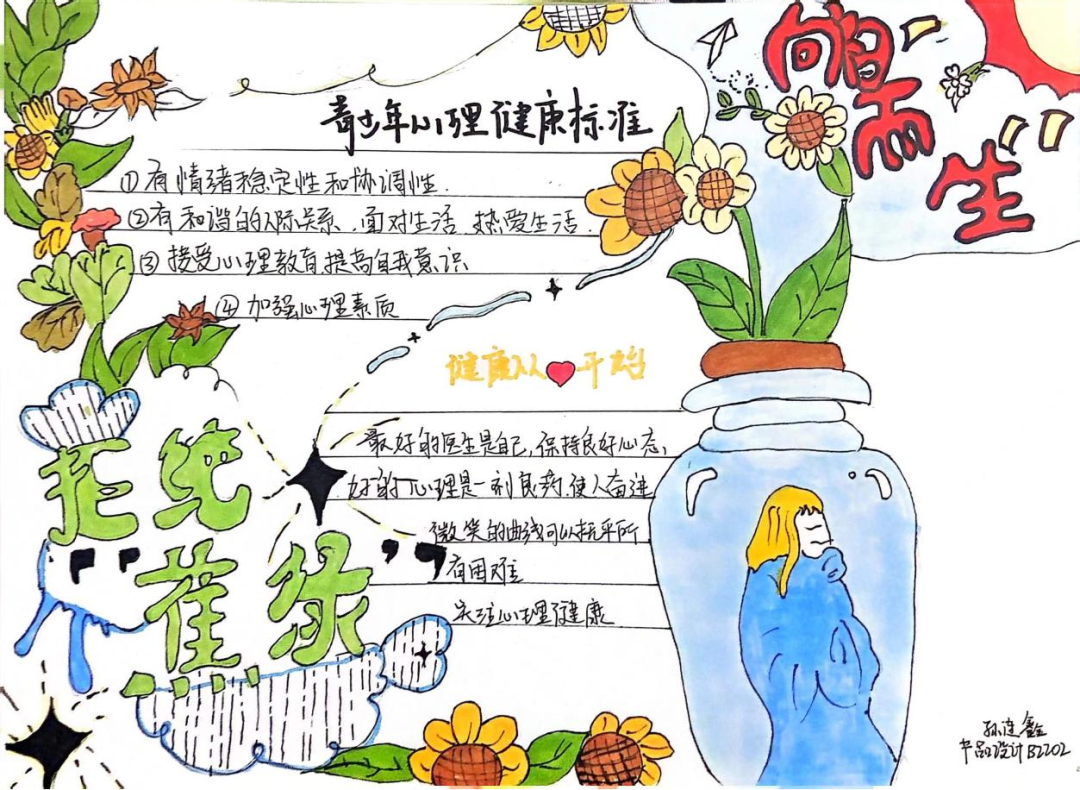 "向阳
而
生"
青少年心理健康标准
①有情绪稳定性和协调性.
②有和谐的人际关系,面对生活,热爱生活.
③接受心理教育提高自我意识
④加强心理素质
健康从 开始
拒绝
"蕉绿"
最好的医生是自己,保持良好心态,
好的心理是一剂良药,使人奋进
微笑的曲线可以抚平所
有困难
关注心理健康
产品设计B2202